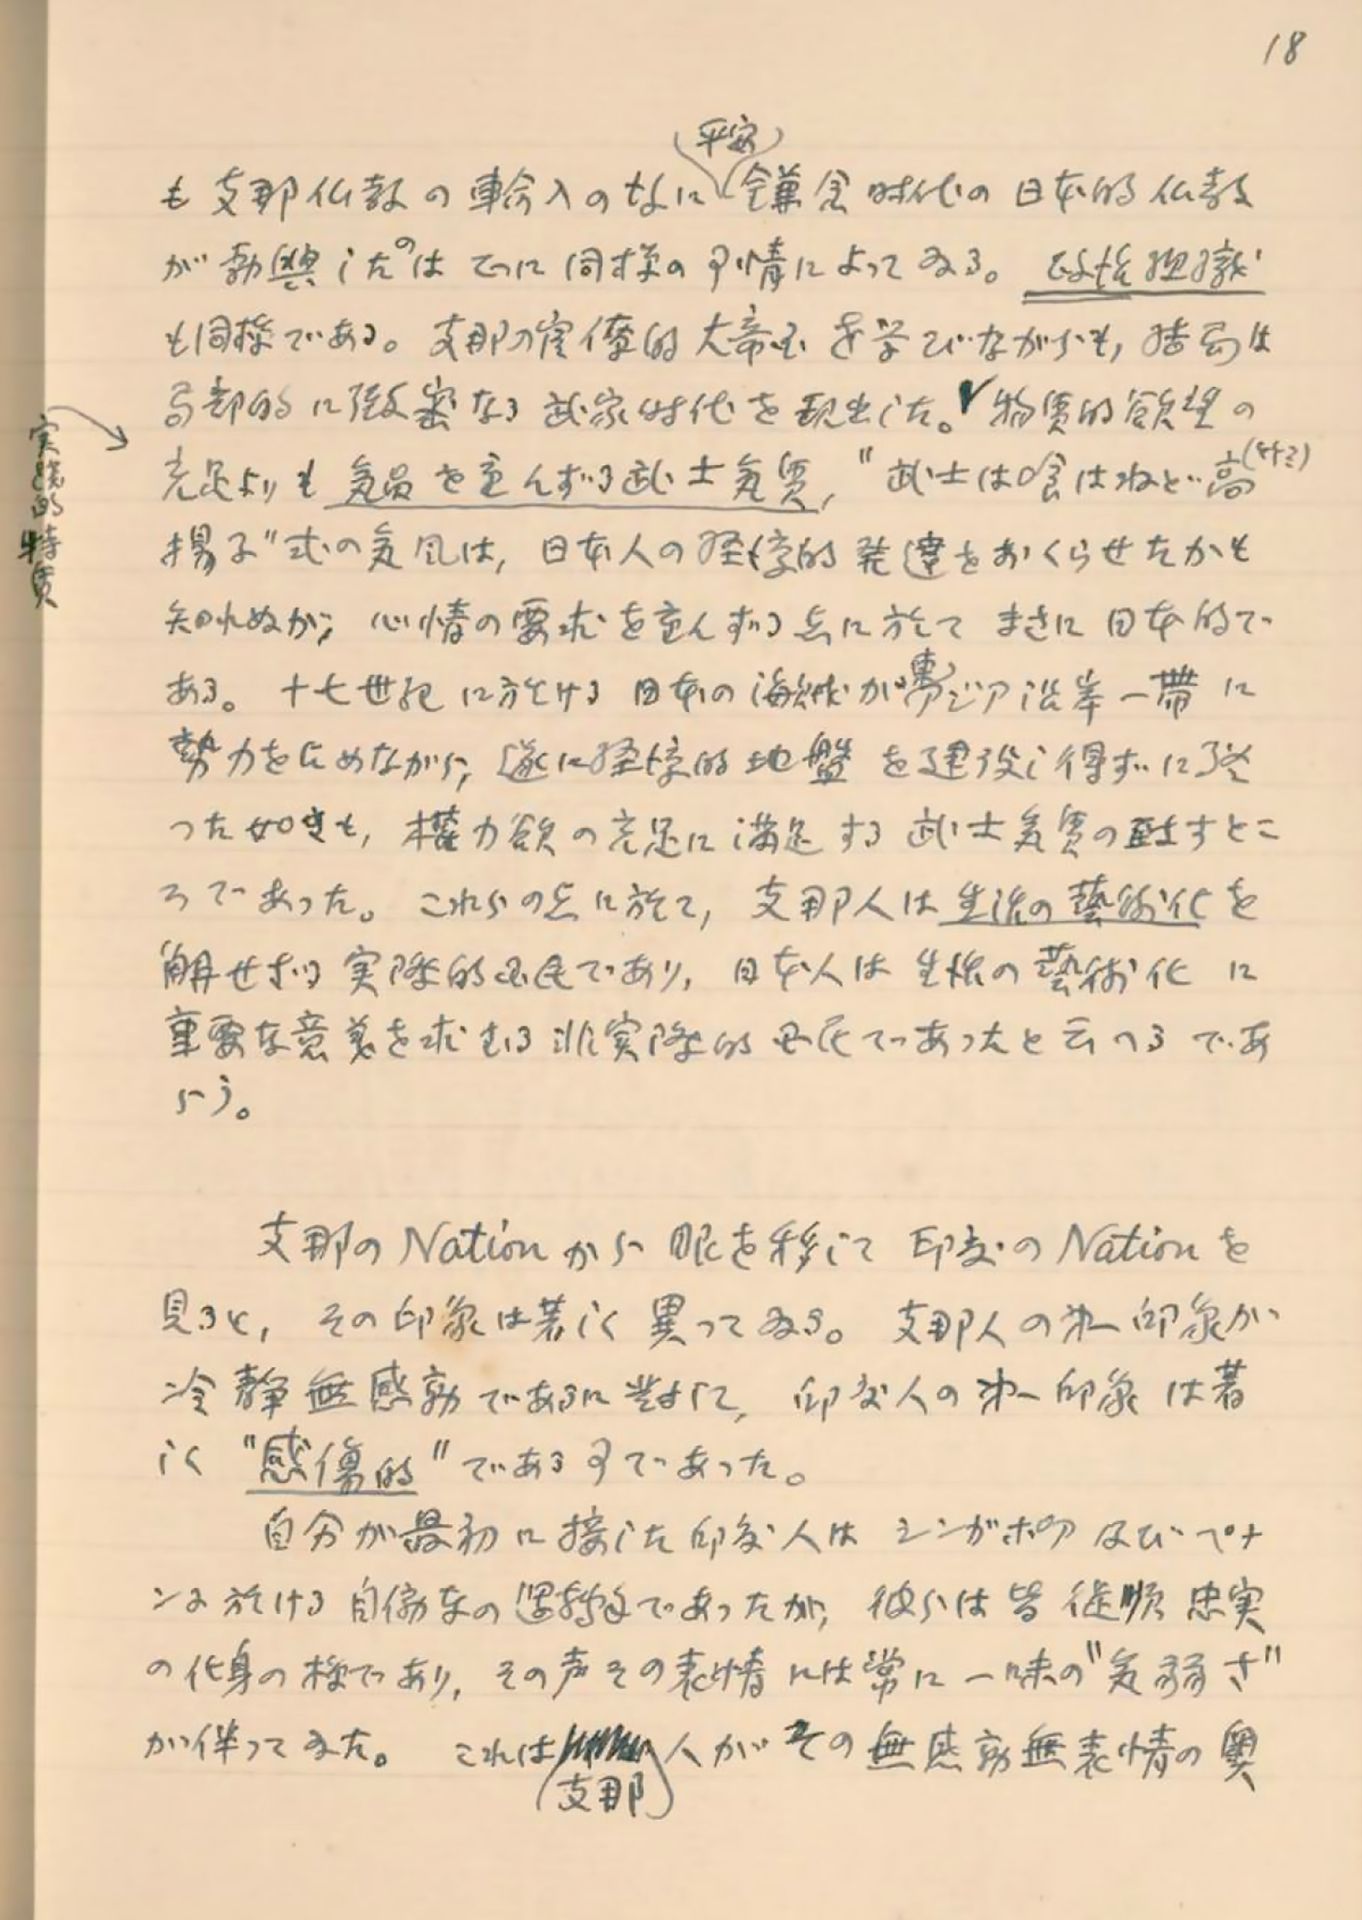 18
(平安)
も支那仏教の輸入のなに鎌倉時代の日本的仏教
が勃興したのはまさに同様の事情によってゐる。政治組織
も同様である。支那の官僚的大帝国を学びながらも，結局は
局部的に緻密なる武家時代を現出した。✓物質的欲望の
充足よりも気品を重んずる武士気質，"武士は喰はねど高(タカ)
揚子"式の気風は，日本人の経済的発達をおくらせたかも
知れぬが，心情の要求を重んずる点に於てまさに日本的で
ある。十七世紀に於ける日本の海賊が東アジア沿岸一帯に
勢力を占めながら，遂に経済的地盤を建設し得ずに終
った如きも，権力欲の充足に満足する武士気質の致すとこ
ろであった。これらの点に於て，支那人は生活の藝術化を
解せざる実際的国民であり，日本人は生活の藝術化に
重要な意義を求むる非実際的国民であったと云へるであ
らう。
実践的特質
支那のNationから眼を移して印度のNationを
見ると，その印象は著しく異ってゐる。支那人の第一印象が
冷静無感動であるに対して，印度人の第一印象は著
しく"感傷的"である事であった。
自分が最初に接した印度人はシンガポア及びペナ
ンに於ける自働車の運転手であったが，彼らは皆従順忠実
の化身の様であり，その声その表情には常に一味の"気弱さ"
が伴ってゐた。これは人がその無感動無表情の奥
(支那)